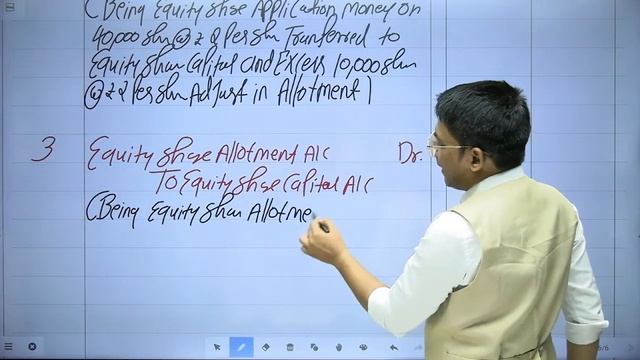 (Being Equity Share Application Money on
40,000 shr @ ₹ 2 Per shr Transferred to
Equity Share Capital and Excess 10,000 shr
@ ₹ 2 Per shr Adjust in Allotment)
3 Equity Share Allotment A/C Dr.
To Equity Share Capital A/C
(Being Equity Shar Allotme